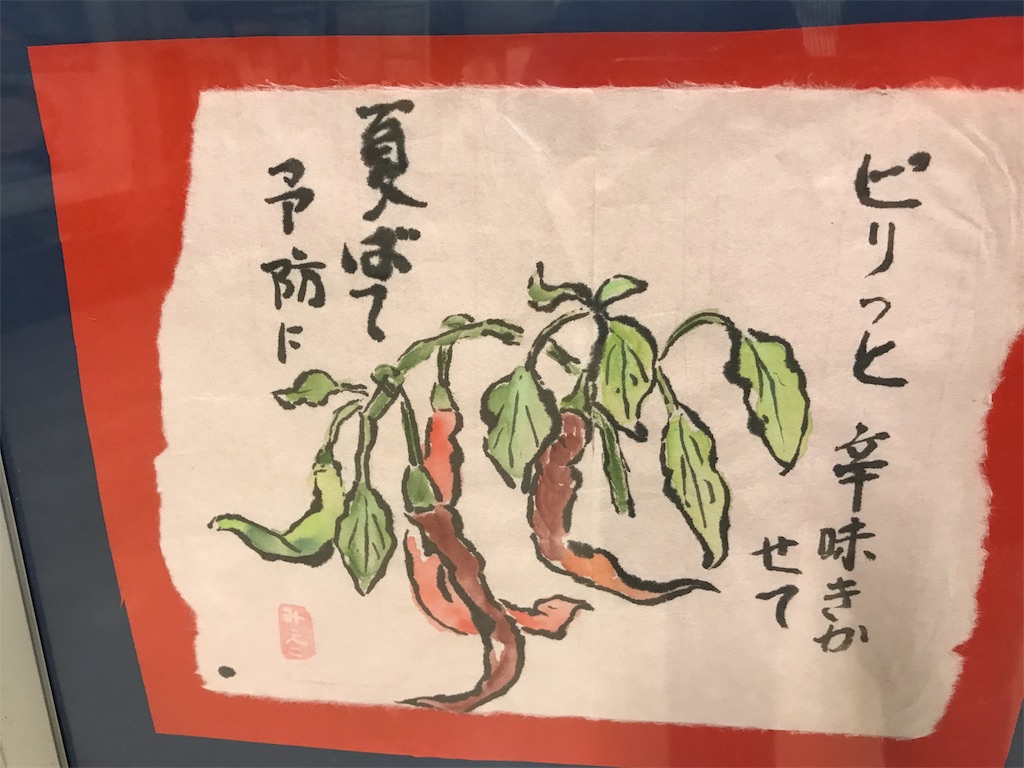 ピリッと
辛味きか
せて
夏ばて
予防に
みえこ